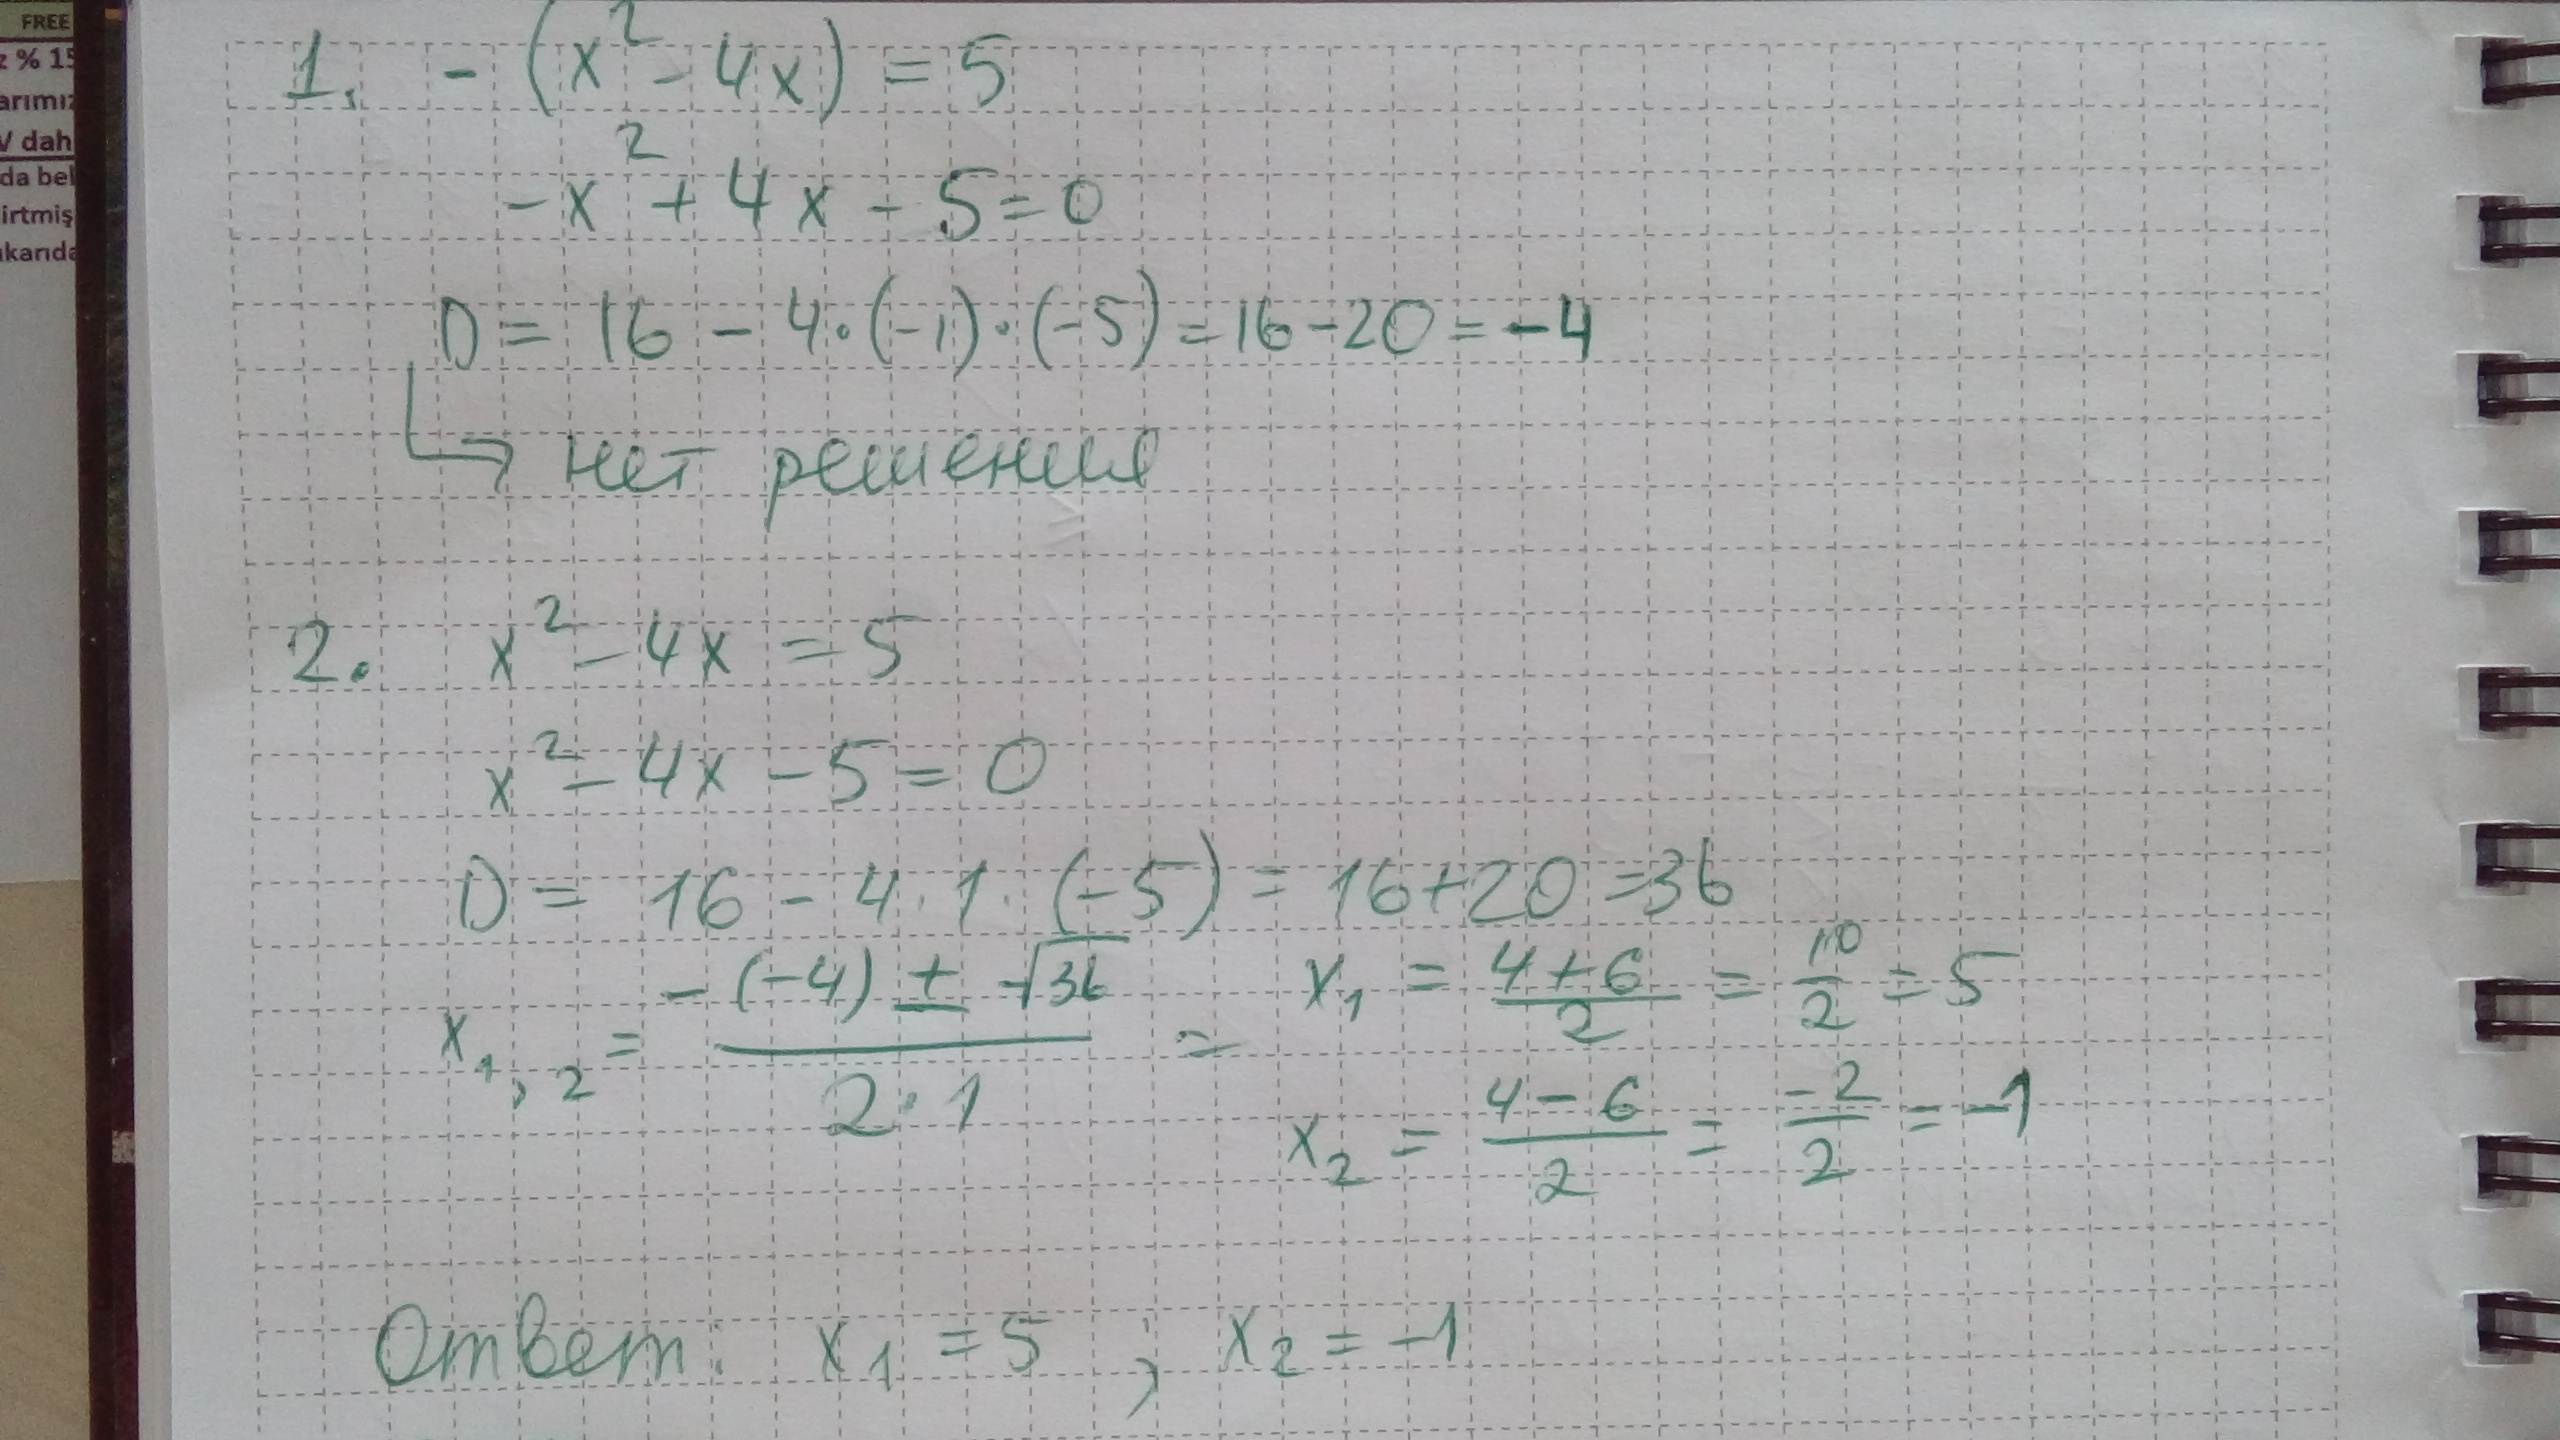 FREE
z % 15
arımız
V dah
da bel
irtmiş
ukarıda
1. -(x² - 4x) = 5
-x² + 4x - 5 = 0
D = 16 - 4·(-1)·(-5) = 16 - 20 = -4
↳ нет решения
2. x² - 4x = 5
x² - 4x - 5 = 0
D = 16 - 4·1·(-5) = 16 + 20 = 36
x₁,₂ = (-(-4) ± √36)/(2·1) =
x₁ = (4 + 6)/2 = 10/2 = 5
x₂ = (4 - 6)/2 = -2/2 = -1
Ответ: x₁ = 5 ; x₂ = -1